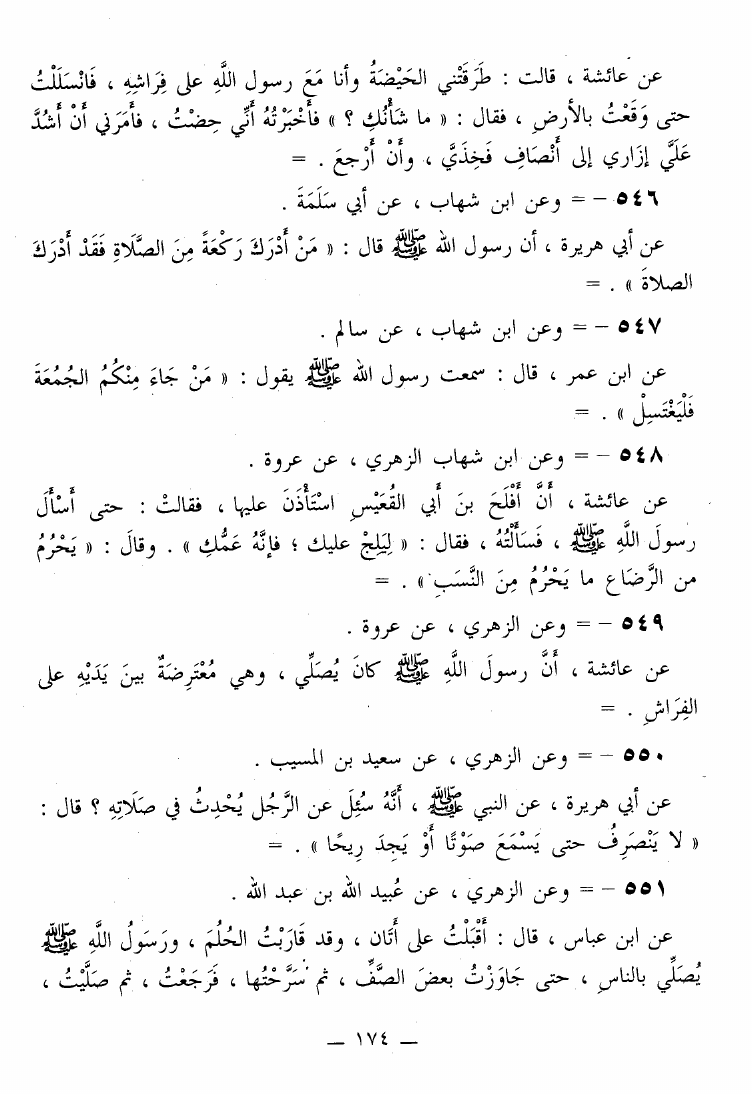 عن عائشة ، قالت : طَرَقَتْني الحَيْضَةُ وأنا مَعَ رسول اللَّهِ على فِرَاشِهِ ، فَانْسَلَلْتُ
حتى وَقَعْتُ بالأرضِ ، فقال : « ما شَأْنُكِ ؟ » فأَخْبَرْتُهُ أَنِّي حِضْتُ ، فأَمَرَني أَنْ أَشُدَّ
عَلَيَّ إزَاري إلى أَنْصَافِ فَخِذَيَّ ، وأَنْ أَرْجعَ . =
٥٤٦ – = وعن ابن شهاب ، عن أبي سَلَمَةَ .
عن أبي هريرة ، أن رسول الله ﷺ قال : « مَنْ أَدْرَكَ رَكْعَةً مِنَ الصَّلَاةِ فَقَدْ أَدْرَكَ
الصلاةَ » . =
٥٤٧ – = وعن ابن شهاب ، عن سالم .
عن ابن عمر ، قال : سمعت رسول الله ﷺ يقول : « مَنْ جَاءَ مِنْكُمُ الجُمُعَةَ
فَلْيَغْتَسِلْ » . =
٥٤٨ – = وعن ابن شهاب الزهري ، عن عروة .
عن عائشة ، أَنَّ أَفْلَحَ بنَ أَبي القُعَيْسِ اسْتَأْذَنَ عليها ، فقالتْ : حتى أَسْأَلَ
رسولَ اللَّهِ ﷺ ، فَسَأَلْتُهُ ، فقال : « لِيَلِجْ عليك ؛ فإنَّهُ عَمُّكِ » . وقالَ : « يَحْرُمُ
من الرَّضَاعِ ما يَحْرُمُ مِنَ النَّسَبِ » . =
٥٤٩ – = وعن الزهري ، عن عروة .
عن عائشة ، أَنَّ رسولَ اللَّهِ ﷺ كانَ يُصَلِّي ، وهي مُعْتَرِضَةٌ بينَ يَدَيْهِ على
الفِرَاشِ . =
٥٥٠ – = وعن الزهري ، عن سعيد بن المسيب .
عن أبي هريرة ، عن النبي ﷺ ، أَنَّهُ سُئِلَ عن الرَّجُل يُحْدِثُ في صَلَاتِهِ ؟ قال :
« لا يَنْصَرِفُ حتى يَسْمَعَ صَوْتًا أَوْ يَجِدَ رِيحًا » . =
٥٥١ – = وعن الزهري ، عن عُبيد الله بن عبد الله .
عن ابن عباس ، قال : أَقْبَلْتُ على أَتَان ، وقد قَارَبْتُ الحُلُمَ ، ورَسَولُ اللَّهِ ﷺ
يُصَلِّي بالناسِ ، حتى جَاوَزْتُ بعضَ الصَّفِّ ، ثم سَرَّحْتُها ، فَرَجَعْتُ ، ثم صَلَّيْتُ ،
— ١٧٤ —